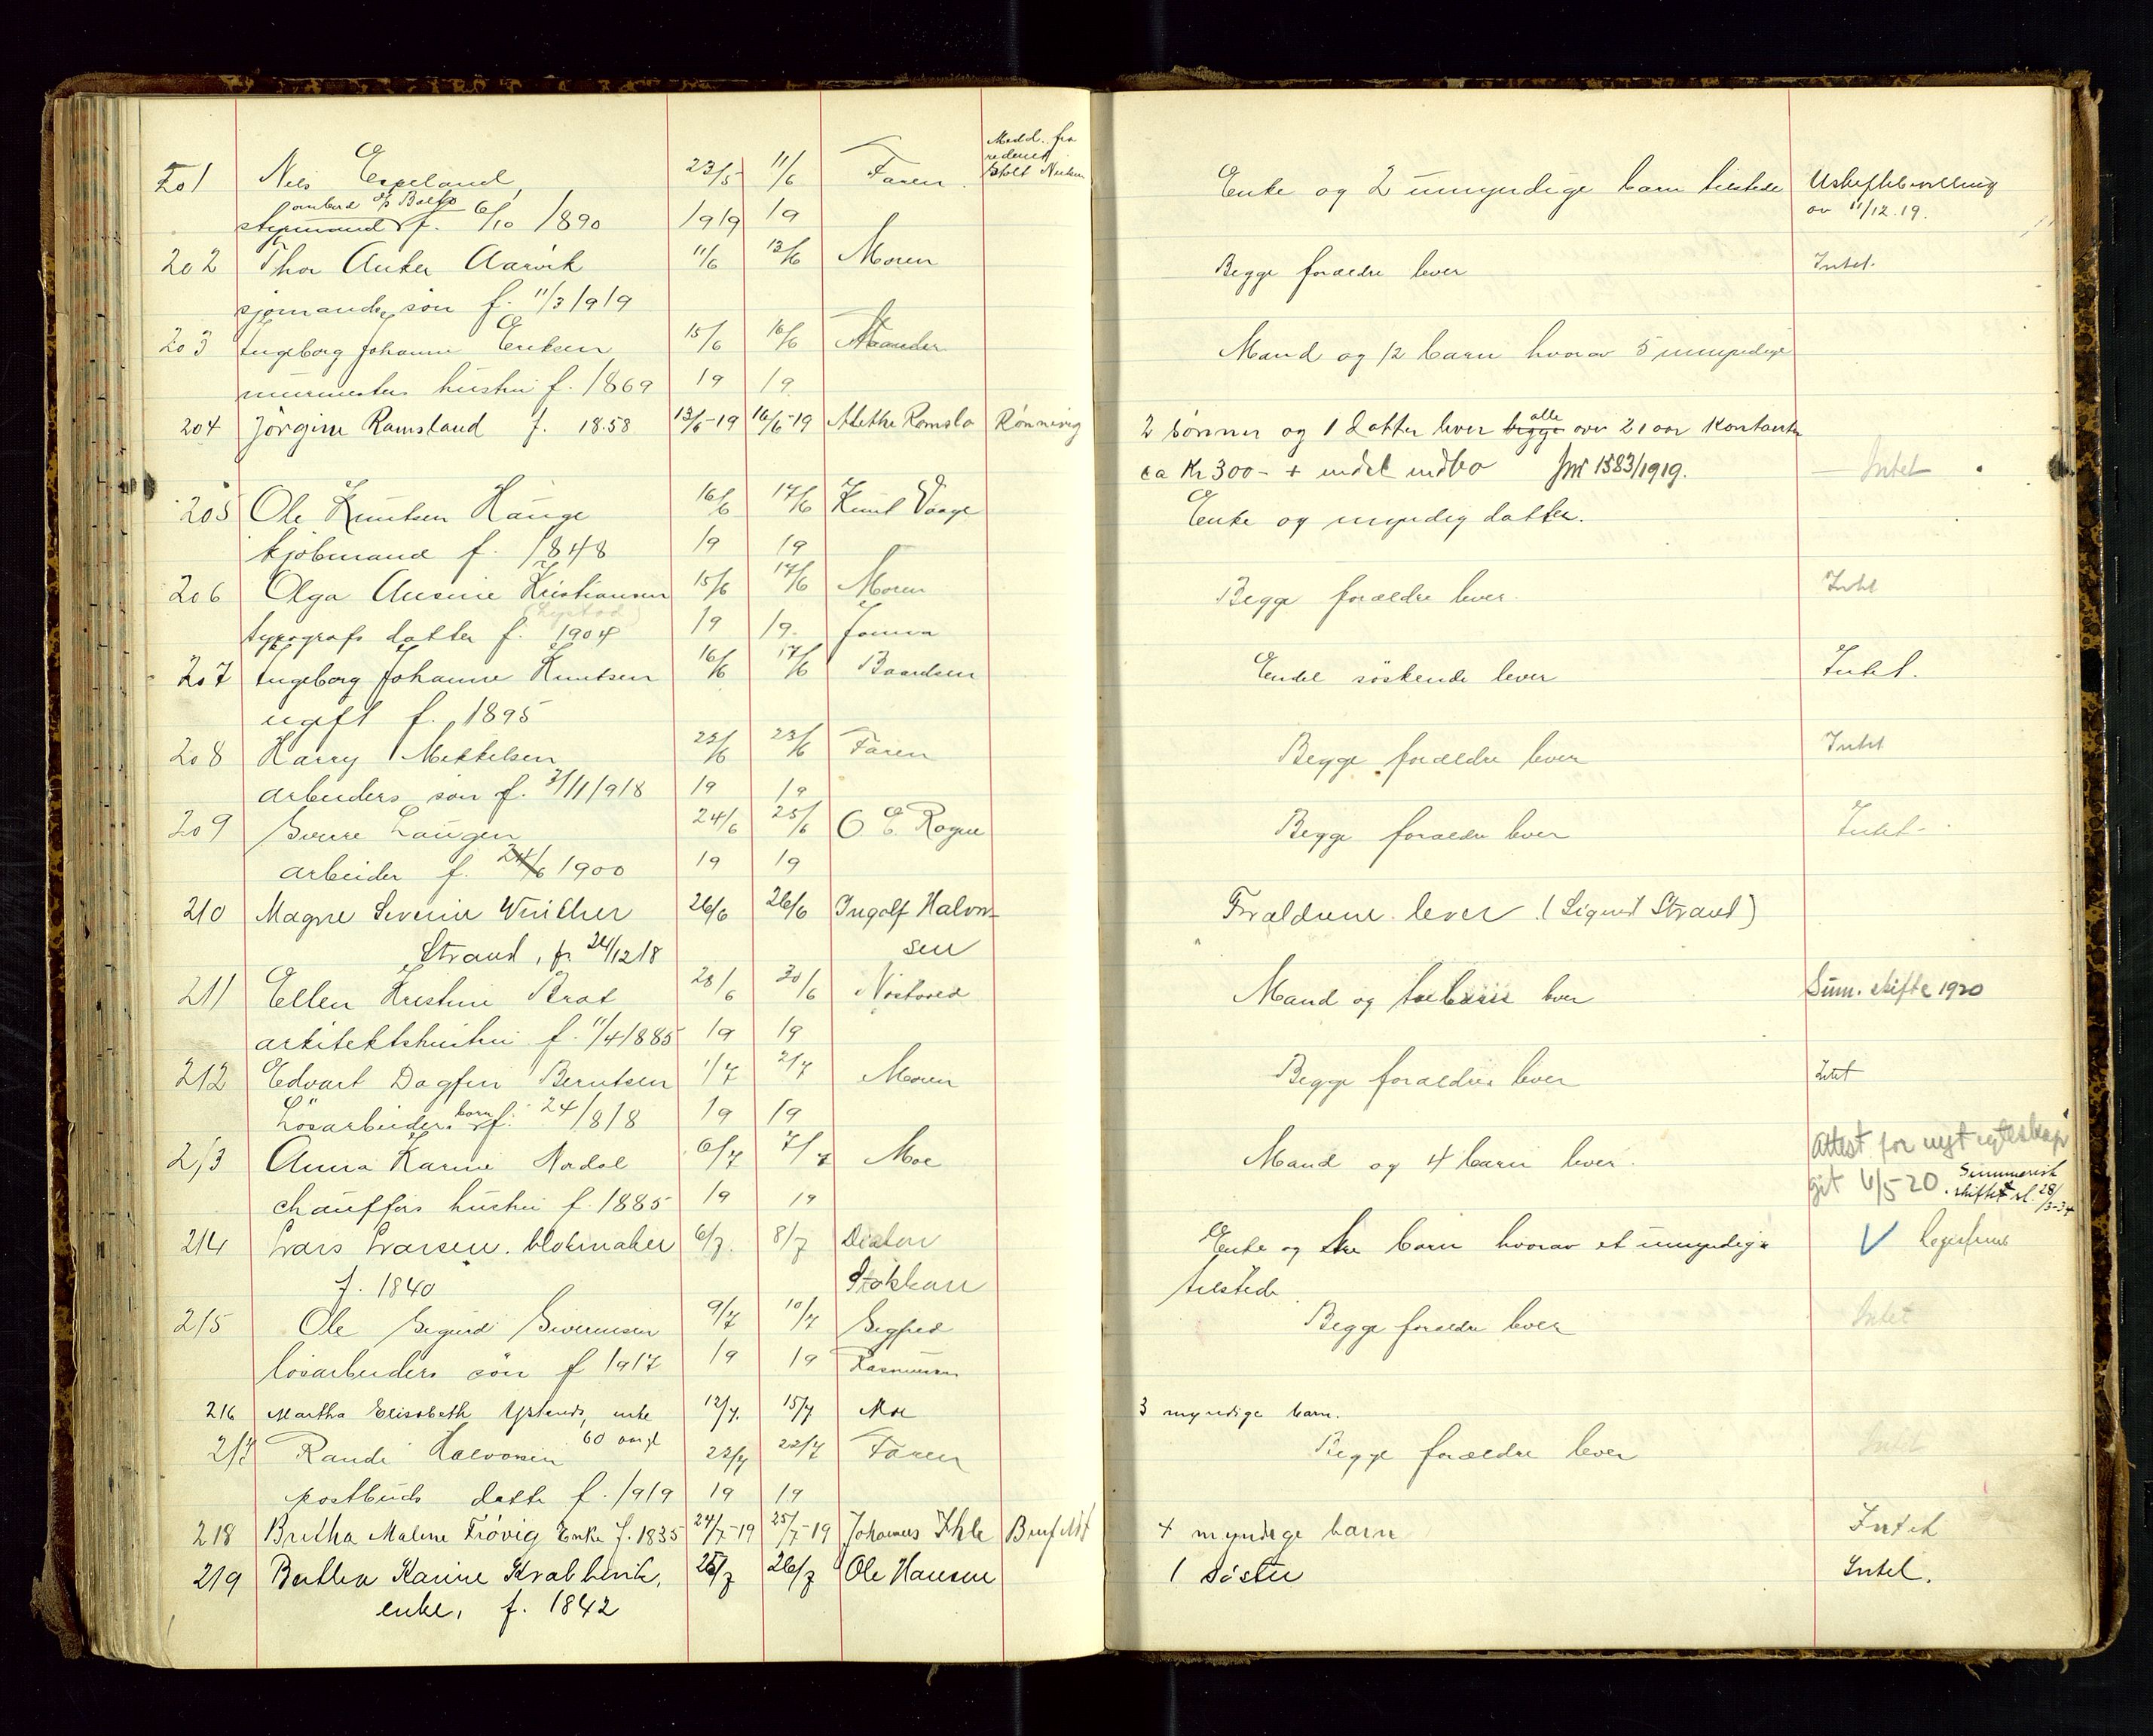 Medd. fra
201 Nils Espeland 23/5 11/6 Faren Enke og 2 umyndige barn tilstede Uskiftebevilling
styrmand f. 6/10 1890 1919 19 av 11/12.19.
202 Thor Anker Aarvik 11/6 13/6 Moren Begge forældre lever Intet.
sjømands søn f. 11/3 1919
203 Ingeborg Johanne Eriksen 15/6 16/6 Mand og 12 barn hvorav 5 umyndige
murmesters hustru f. 1869 19 19
204 Jørgine Ramsland f. 1858 13/6-19 16/6-19 Alethe Romslo Rønnevig 2 sønner og 1 datter lever begge alle over 21 aar Kontanter
ca Kr 300- + endel indbo Jnr 1583/1919. Intet
205 Ole Knutsen Hauge 16/6 17/6 Knut Vaage Enke og myndig datter.
kjøbmand f. 1848 19 19
206 Olga Ausine Kristiansen 15/6 17/6 Moren Begge forældre lever. Intet
typografs datter f. 1904 19 19.
207 Ingeborg Johanne Knutsen 16/6 17/6 Baardsen Endel søskende lever Intet.
ugift f. 1895
208 Harry Mikkelsen 23/6 23/6 Faren Begge forældre lever Intet
arbeiders søn f. 1918 19 19
209 Sverre Laugen 24/6 25/6 O E Rogne Begge forældre lever Intet.
arbeider f. 24/6 1900 19 19
210 Magne Severin Winther 26/6 26/6 Ingolf Halvor- Forældrene lever (Sigurd Strand)
Strand, f. 24/12 18 sen
211 Ellen Kristine Brat 28/6 30/6 Mand og lever Sum. skifte 1920
arkitektshustru f. 11/4 1885 19 19
212 Edvart Dagfin Berntsen 1/7 2/7 Moren Begge forældre lever Intet
Løsarbeiders barn f. 24/8 18 19 19
213 Anna Karine Nordal 6/7 7/7 Moe Mand og 4 barn lever. Attest for nyt egteskap
chaufførs hustru f. 1885 19 19 git 6/5 20. Summarisk skifte sl. 28/3-34
214 Lars Larsen. blokmaker 6/7 8/7 Diakon Enke og tre barn hvorav et umyndig
f. 1840 Stokkan tilstede
215 Ole Sigurd Sivertsen 9/7 10/7 Sigfred Begge forældre lever Intet
løsarbeiders søn f 1917 19 19 Rasmussen
216 Martha Elisabeth Ystands, enke 12/7. 15/7 Moe 3 myndige barn.
60 aar gl
217 Randi Halvorsen 22/7 22/7 Faren Begge forældre lever Intet
postbuds datter f. 1919 19 19
218 Bertha Malene Frøvig Enke f. 1835 24/7-19 25/7-19 Johannes Ihle 4 myndige barn Intet
219 Berthea Karine 25/7 26/7 Ole Hansen 1 søster Intet.
enke, f. 1842